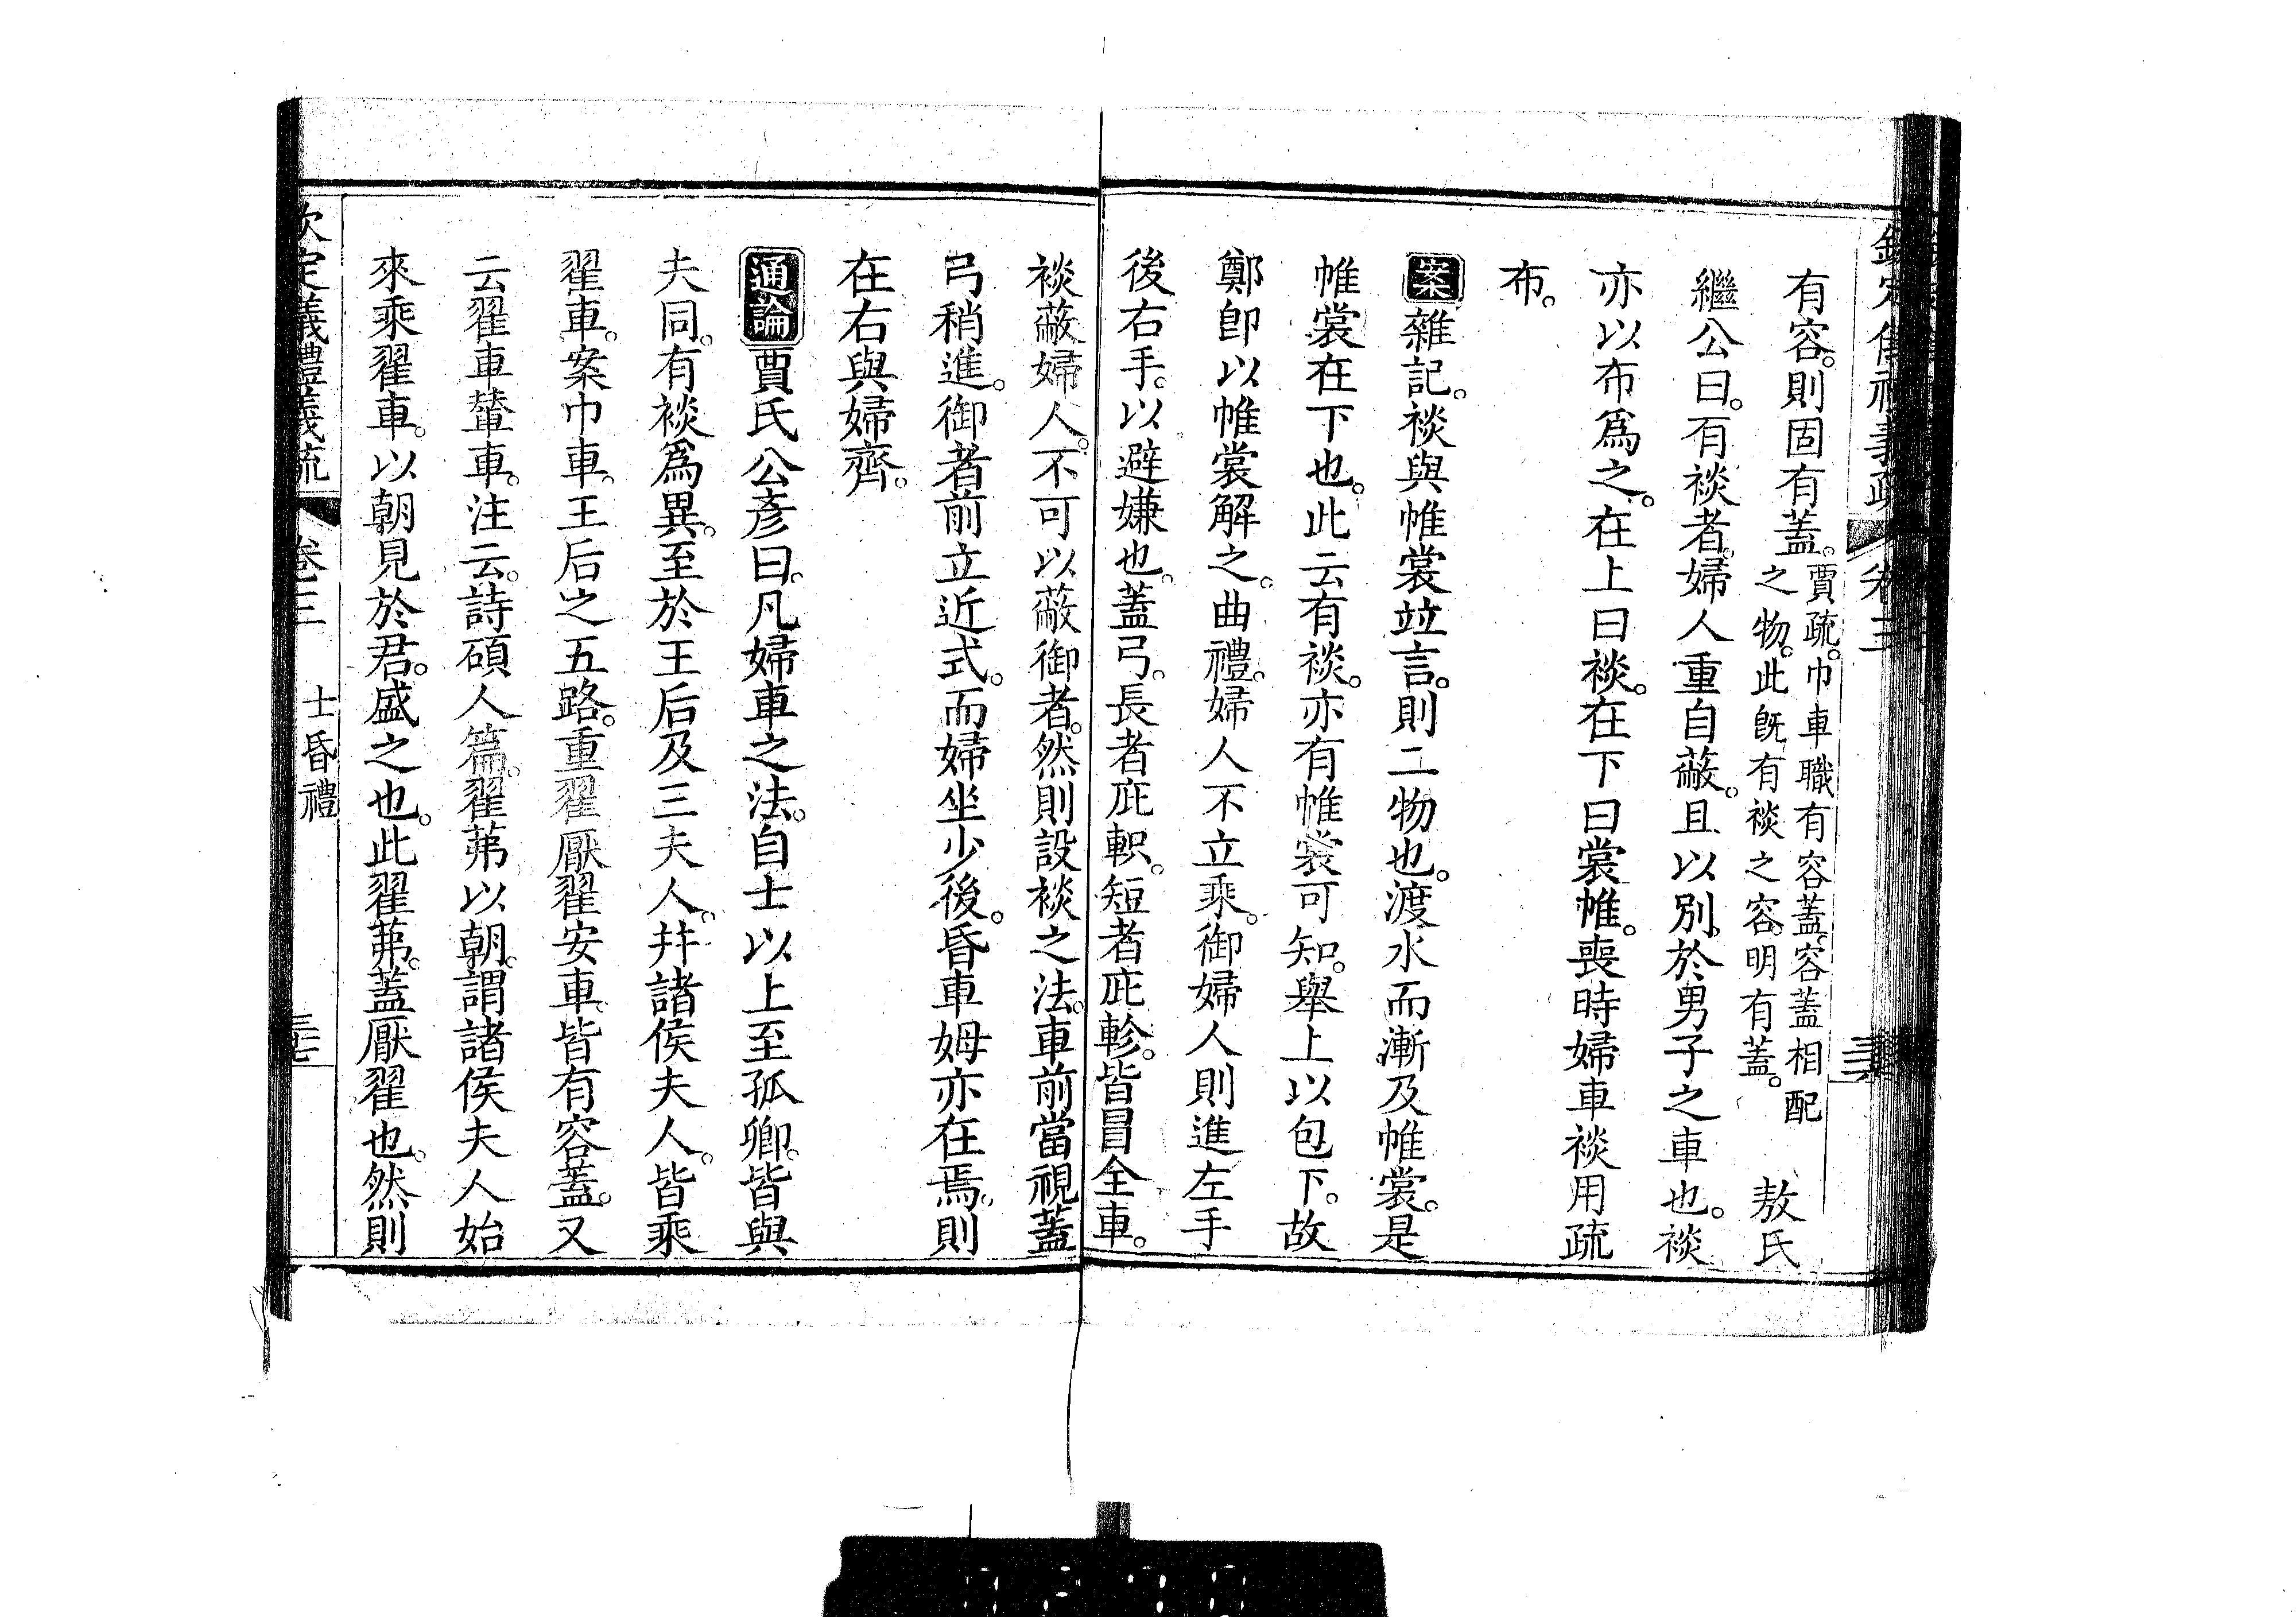 有容。則固有蓋。賈疏。巾車職有容蓋。容蓋相配
之物。此既有裧之容。明有蓋。敖氏
繼公曰。有裧者。婦人重自蔽。且以別於男子之車也。裧
亦以布爲之。在上曰裧。在下曰裳帷。喪時婦車裧用疏
布。
案雜記。裧與帷裳竝言。則二物也。渡水而漸及帷裳。是
帷裳在下也。此云有裧。亦有帷裳可知。舉上以包下。故
鄭卽以帷裳解之。曲禮。婦人不立乘。御婦人則進左手
後右手。以避嫌也。蓋弓。長者庇軹。短者庇軫。皆冒全車。
裧蔽婦人。不可以蔽御者。然則設裧之法。車前當視蓋
弓稍進。御者前立近式。而婦坐少後。昏車姆亦在焉。則
在右與婦齊。
通論賈氏公彥曰。凡婦車之法。自士以上至孤卿。皆與
夫同。有裧爲異。至於王后及三夫人。幷諸侯夫人。皆乘
翟車。案巾車。王后之五路。重翟厭翟安車。皆有容蓋。又
云翟車輦車。注云。詩碩人篇。翟茀以朝。謂諸侯夫人始
來乘翟車。以朝見於君。盛之也。此翟茀。蓋厭翟也。然則
欽定儀禮義疏 卷三 士昏禮